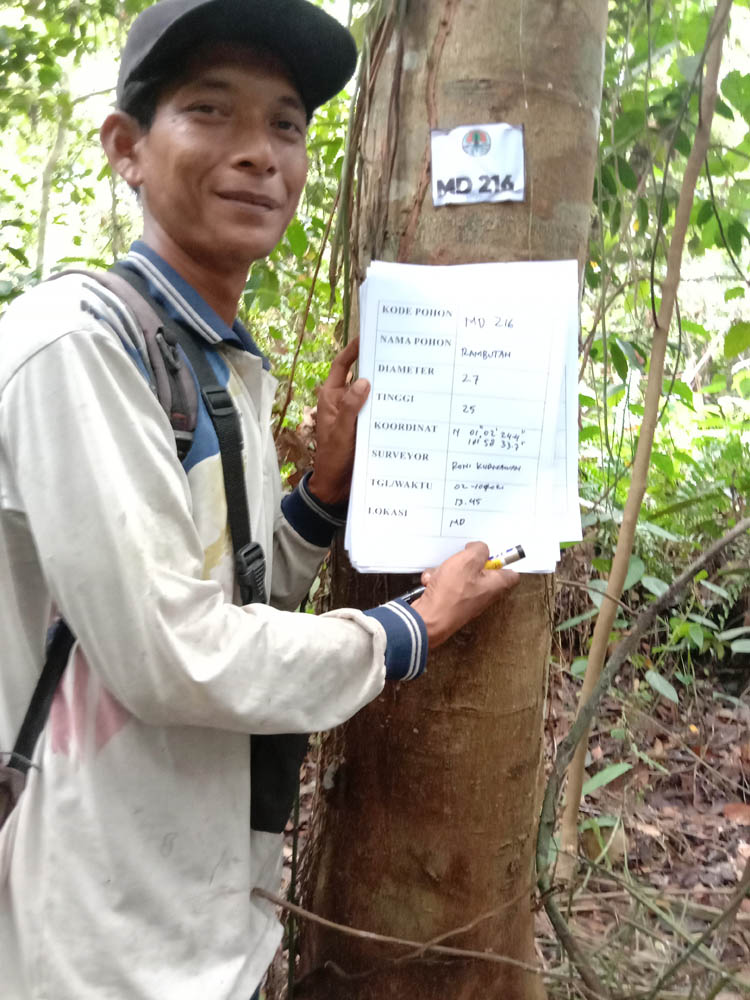 MD 216
KODE POHON MD 216
NAMA POHON RAMBUTAN
DIAMETER 27
TINGGI 25
KOORDINAT N 01° 02' 24.4"
101° 58' 33.7"
SURVEYOR RONI
TGL/WAKTU 02-
13.45
LOKASI MD